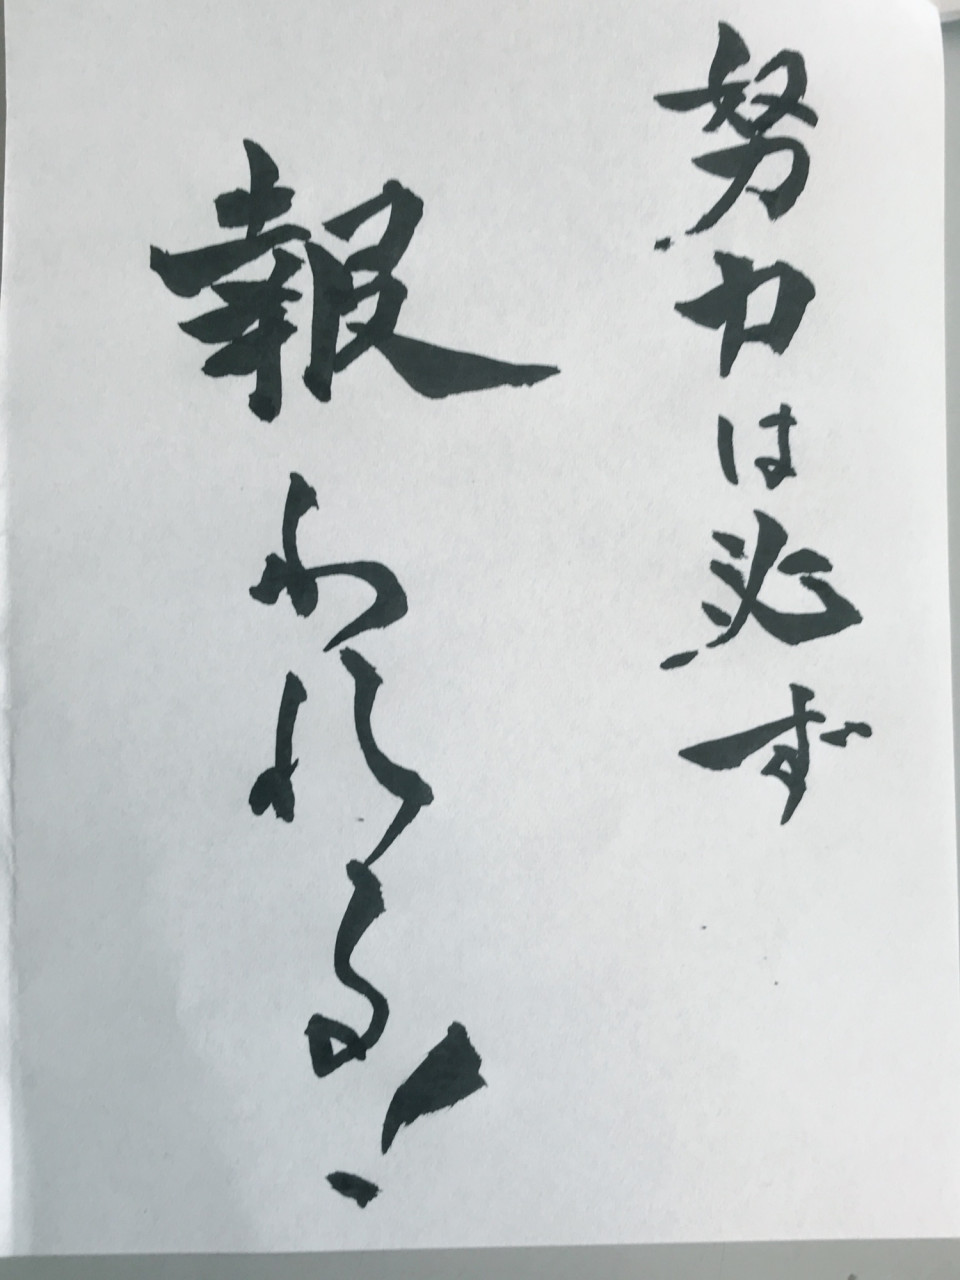 努力は必ず
報われる!